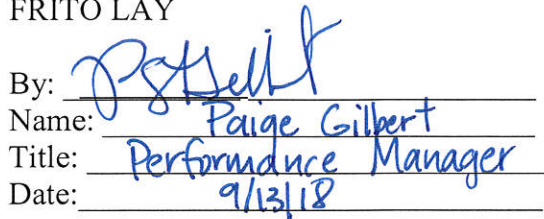 FRITO LAY
By:
Name: Paige Gilbert
Title: Performance Manager
Date: 9/13/18